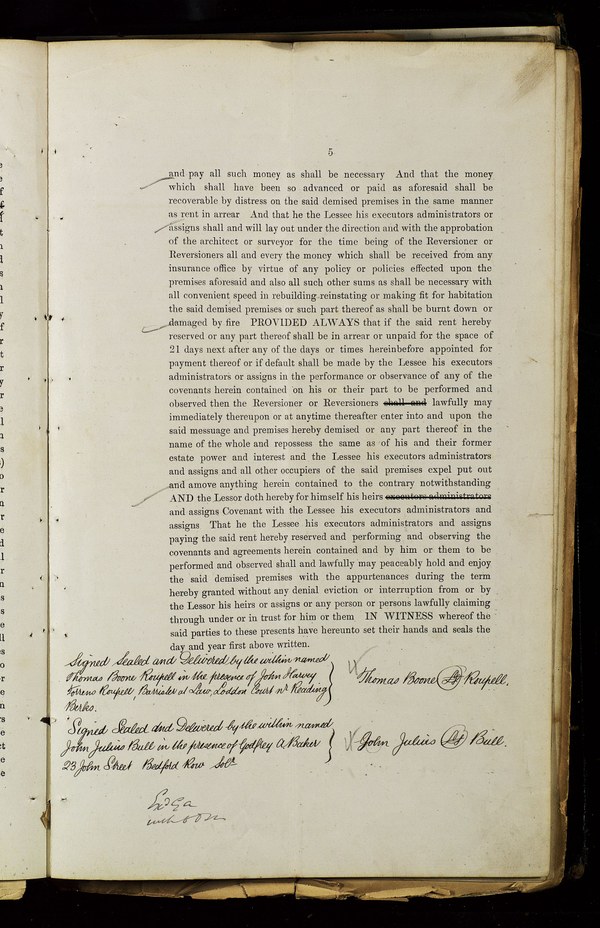 5
and pay all such money as shall be necessary And that the money
which shall have been so advanced or paid as aforesaid shall be
recoverable by distress on the said demised premises in the same manner
as rent in arrear And that he the Lessee his executors administrators or
assigns shall and will lay out under the direction and with the approbation
of the architect or surveyor for the time being of the Reversioner or
Reversioners all and every the money which shall be received from any
insurance office by virtue of any policy or policies effected upon the
premises aforesaid and also all such other sums as shall be necessary with
all convenient speed in rebuilding reinstating or making fit for habitation
the said demised premises or such part thereof as shall be burnt down or
damaged by fire PROVIDED ALWAYS that if the said rent hereby
reserved or any part thereof shall be in arrear or unpaid for the space of
21 days next after any of the days or times hereinbefore appointed for
payment thereof or if default shall be made by the Lessee his executors
administrators or assigns in the performance or observance of any of the
covenants herein contained on his or their part to be performed and
observed then the Reversioner or Reversioners shall and lawfully may
immediately thereupon or at anytime thereafter enter into and upon the
said messuage and premises hereby demised or any part thereof in the
name of the whole and repossess the same as of his and their former
estate power and interest and the Lessee his executors administrators
and assigns and all other occupiers of the said premises expel put out
and amove anything herein contained to the contrary notwithstanding
AND the Lessor doth hereby for himself his heirs executors administrators
and assigns Covenant with the Lessee his executors administrators and
assigns That he the Lessee his executors administrators and assigns
paying the said rent hereby reserved and performing and observing the
covenants and agreements herein contained and by him or them to be
performed and observed shall and lawfully may peaceably hold and enjoy
the said demised premises with the appurtenances during the term
hereby granted without any denial eviction or interruption from or by
the Lessor his heirs or assigns or any person or persons lawfully claiming
through under or in trust for him or them IN WITNESS whereof the
said parties to these presents have hereunto set their hands and seals the
day and year first above written.
Signed Sealed and Delivered by the within named
Thomas Boone Roupell in the presence of John Harvey
Torrens Roupell, Barrister at Law, Loddon Court nr Reading
Berks.
Thomas Boone LS Roupell.
Signed Sealed and Delivered by the within named
John Julius Bull in the presence of Godfrey A Baker
23 John Street Bedford Row Solr
John Julius LS Bull.
Exd GA
with